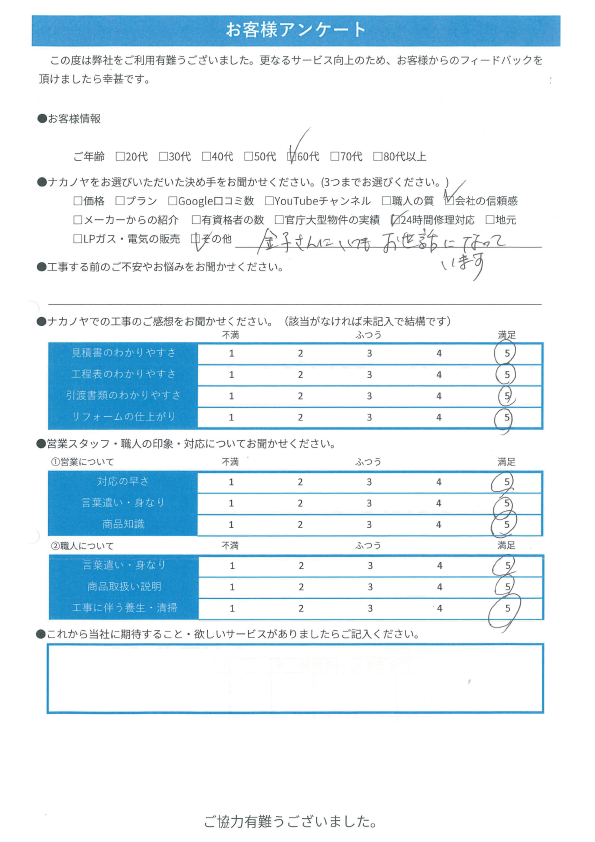 お客様アンケート
この度は弊社をご利用有難うございました。更なるサービス向上のため、お客様からのフィードバックを
頂けましたら幸甚です。
●お客様情報
ご年齢 □20代 □30代 □40代 □50代 ☑60代 □70代 □80代以上
●ナカノヤをお選びいただいた決め手をお聞かせください。(3つまでお選びください。)
□価格 □プラン □Google口コミ数 □YouTubeチャンネル □職人の質 ☑会社の信頼感
□メーカーからの紹介 □有資格者の数 □官庁大型物件の実績 ☑24時間修理対応 □地元
□LPガス・電気の販売 ☑その他 金子さんにいつもお世話になって
います
●工事する前のご不安やお悩みをお聞かせください。
●ナカノヤでの工事のご感想をお聞かせください。（該当がなければ未記入で結構です）
不満 ふつう 満足
見積書のわかりやすさ 1 2 3 4 5
工程表のわかりやすさ 1 2 3 4 5
引渡書類のわかりやすさ 1 2 3 4 5
リフォームの仕上がり 1 2 3 4 5
●営業スタッフ・職人の印象・対応についてお聞かせください。
①営業について 不満 ふつう 満足
対応の早さ 1 2 3 4 5
言葉遣い・身なり 1 2 3 4 5
商品知識 1 2 3 4 5
②職人について 不満 ふつう 満足
言葉遣い・身なり 1 2 3 4 5
商品取扱い説明 1 2 3 4 5
工事に伴う養生・清掃 1 2 3 4 5
●これから当社に期待すること・欲しいサービスがありましたらご記入ください。
ご協力有難うございました。